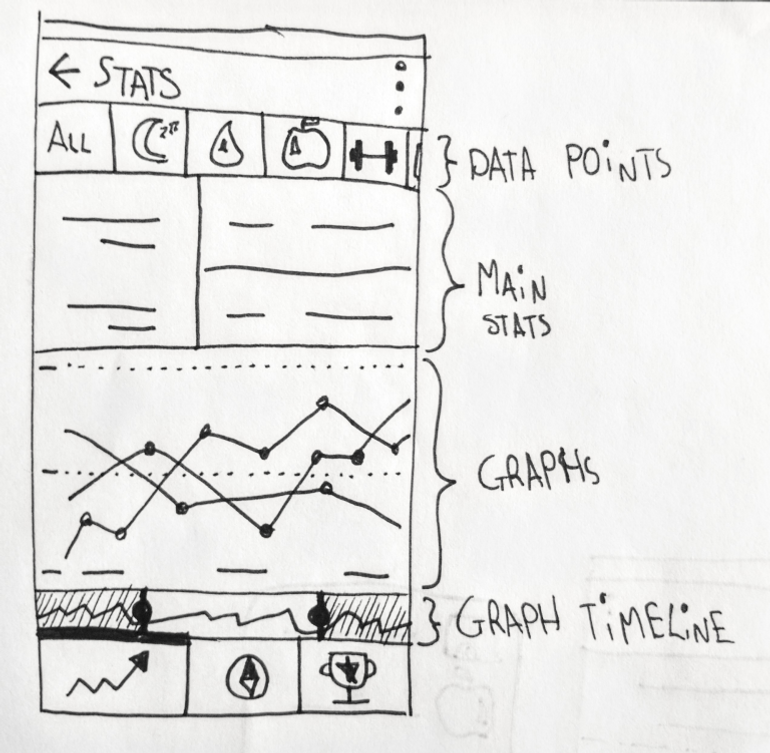 ← STATS
ALL
zzz
DATA POiNTS
MAiN
STATS
GRAPHS
GRAPH TiMELiNE